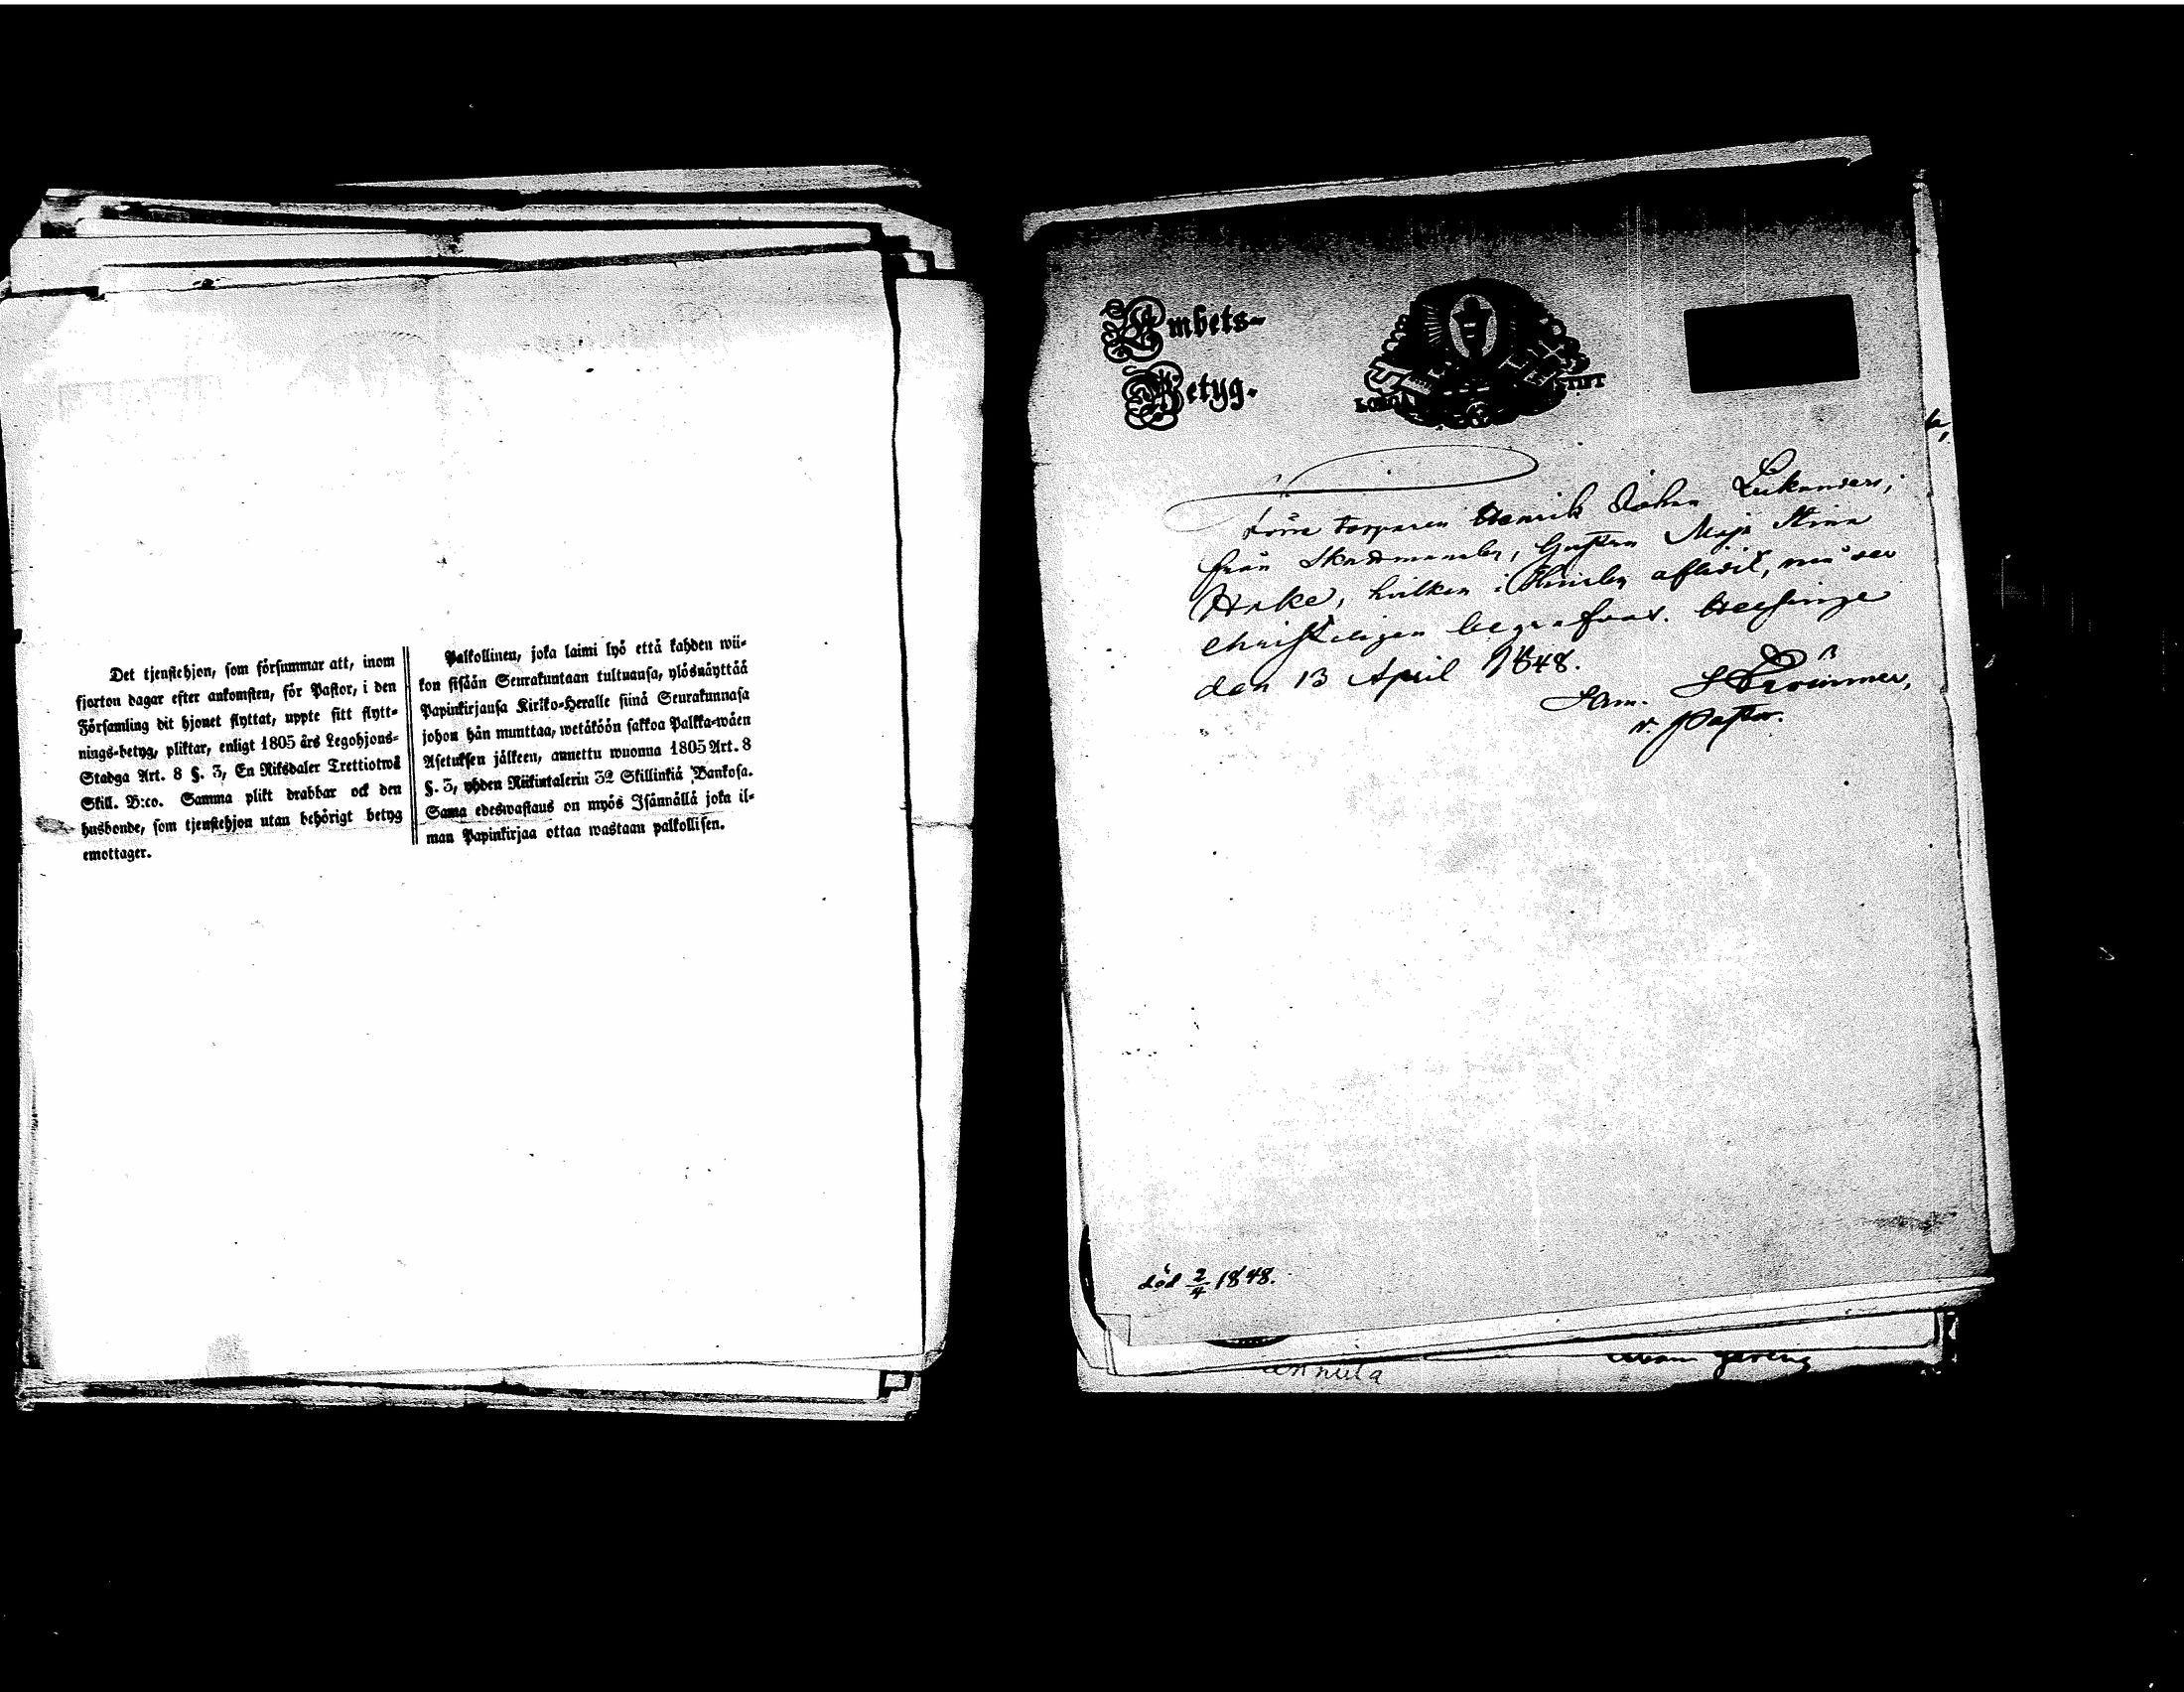 Det tjenstehjon, som försummar att, inom
fjorton dagar efter ankomsten, för Pastor, i den
Församling dit hjonet flyttat, uppte sitt flytt-
nings-betyg, pliktar, enligt 1805 års Legohjons-
Stadga Art. 8 §. 3, En Riksdaler Trettiotwå
Skill. B:co. Samma plikt drabbar ock den
husbonde, som tjenstehjon utan behörigt betyg
emottager.
Palkollinen, joka laimi lyö että kahden wii-
kon sisään Seurakuntaan tultuansa, ylösnäyttää
Papinkirjansa Kirkko-Heralle siinä Seurakunnasa
johon hän munttaa, wetäköön sakkoa Palkka-wäen
Asetuksen jälkeen, annettu wuonna 1805 Art. 8
§. 3, yhden Riikintalerin 32 Skillinkiä Bankosa.
Sama edeswastaus on myös Isännällä joka il-
man Papinkirjaa ottaa wastaan palkollisen.
Embets-
Betyg.
Förre torparen Henrik Johan Lukanders,
från Skattmanby, hustru Maja Stina
hvilken i aflidit, må här
christeligen begrafvas. Helsinge
den 13 April 1848.
Sam. Strömmer,
v. Pastor.
död 2/4 1848.